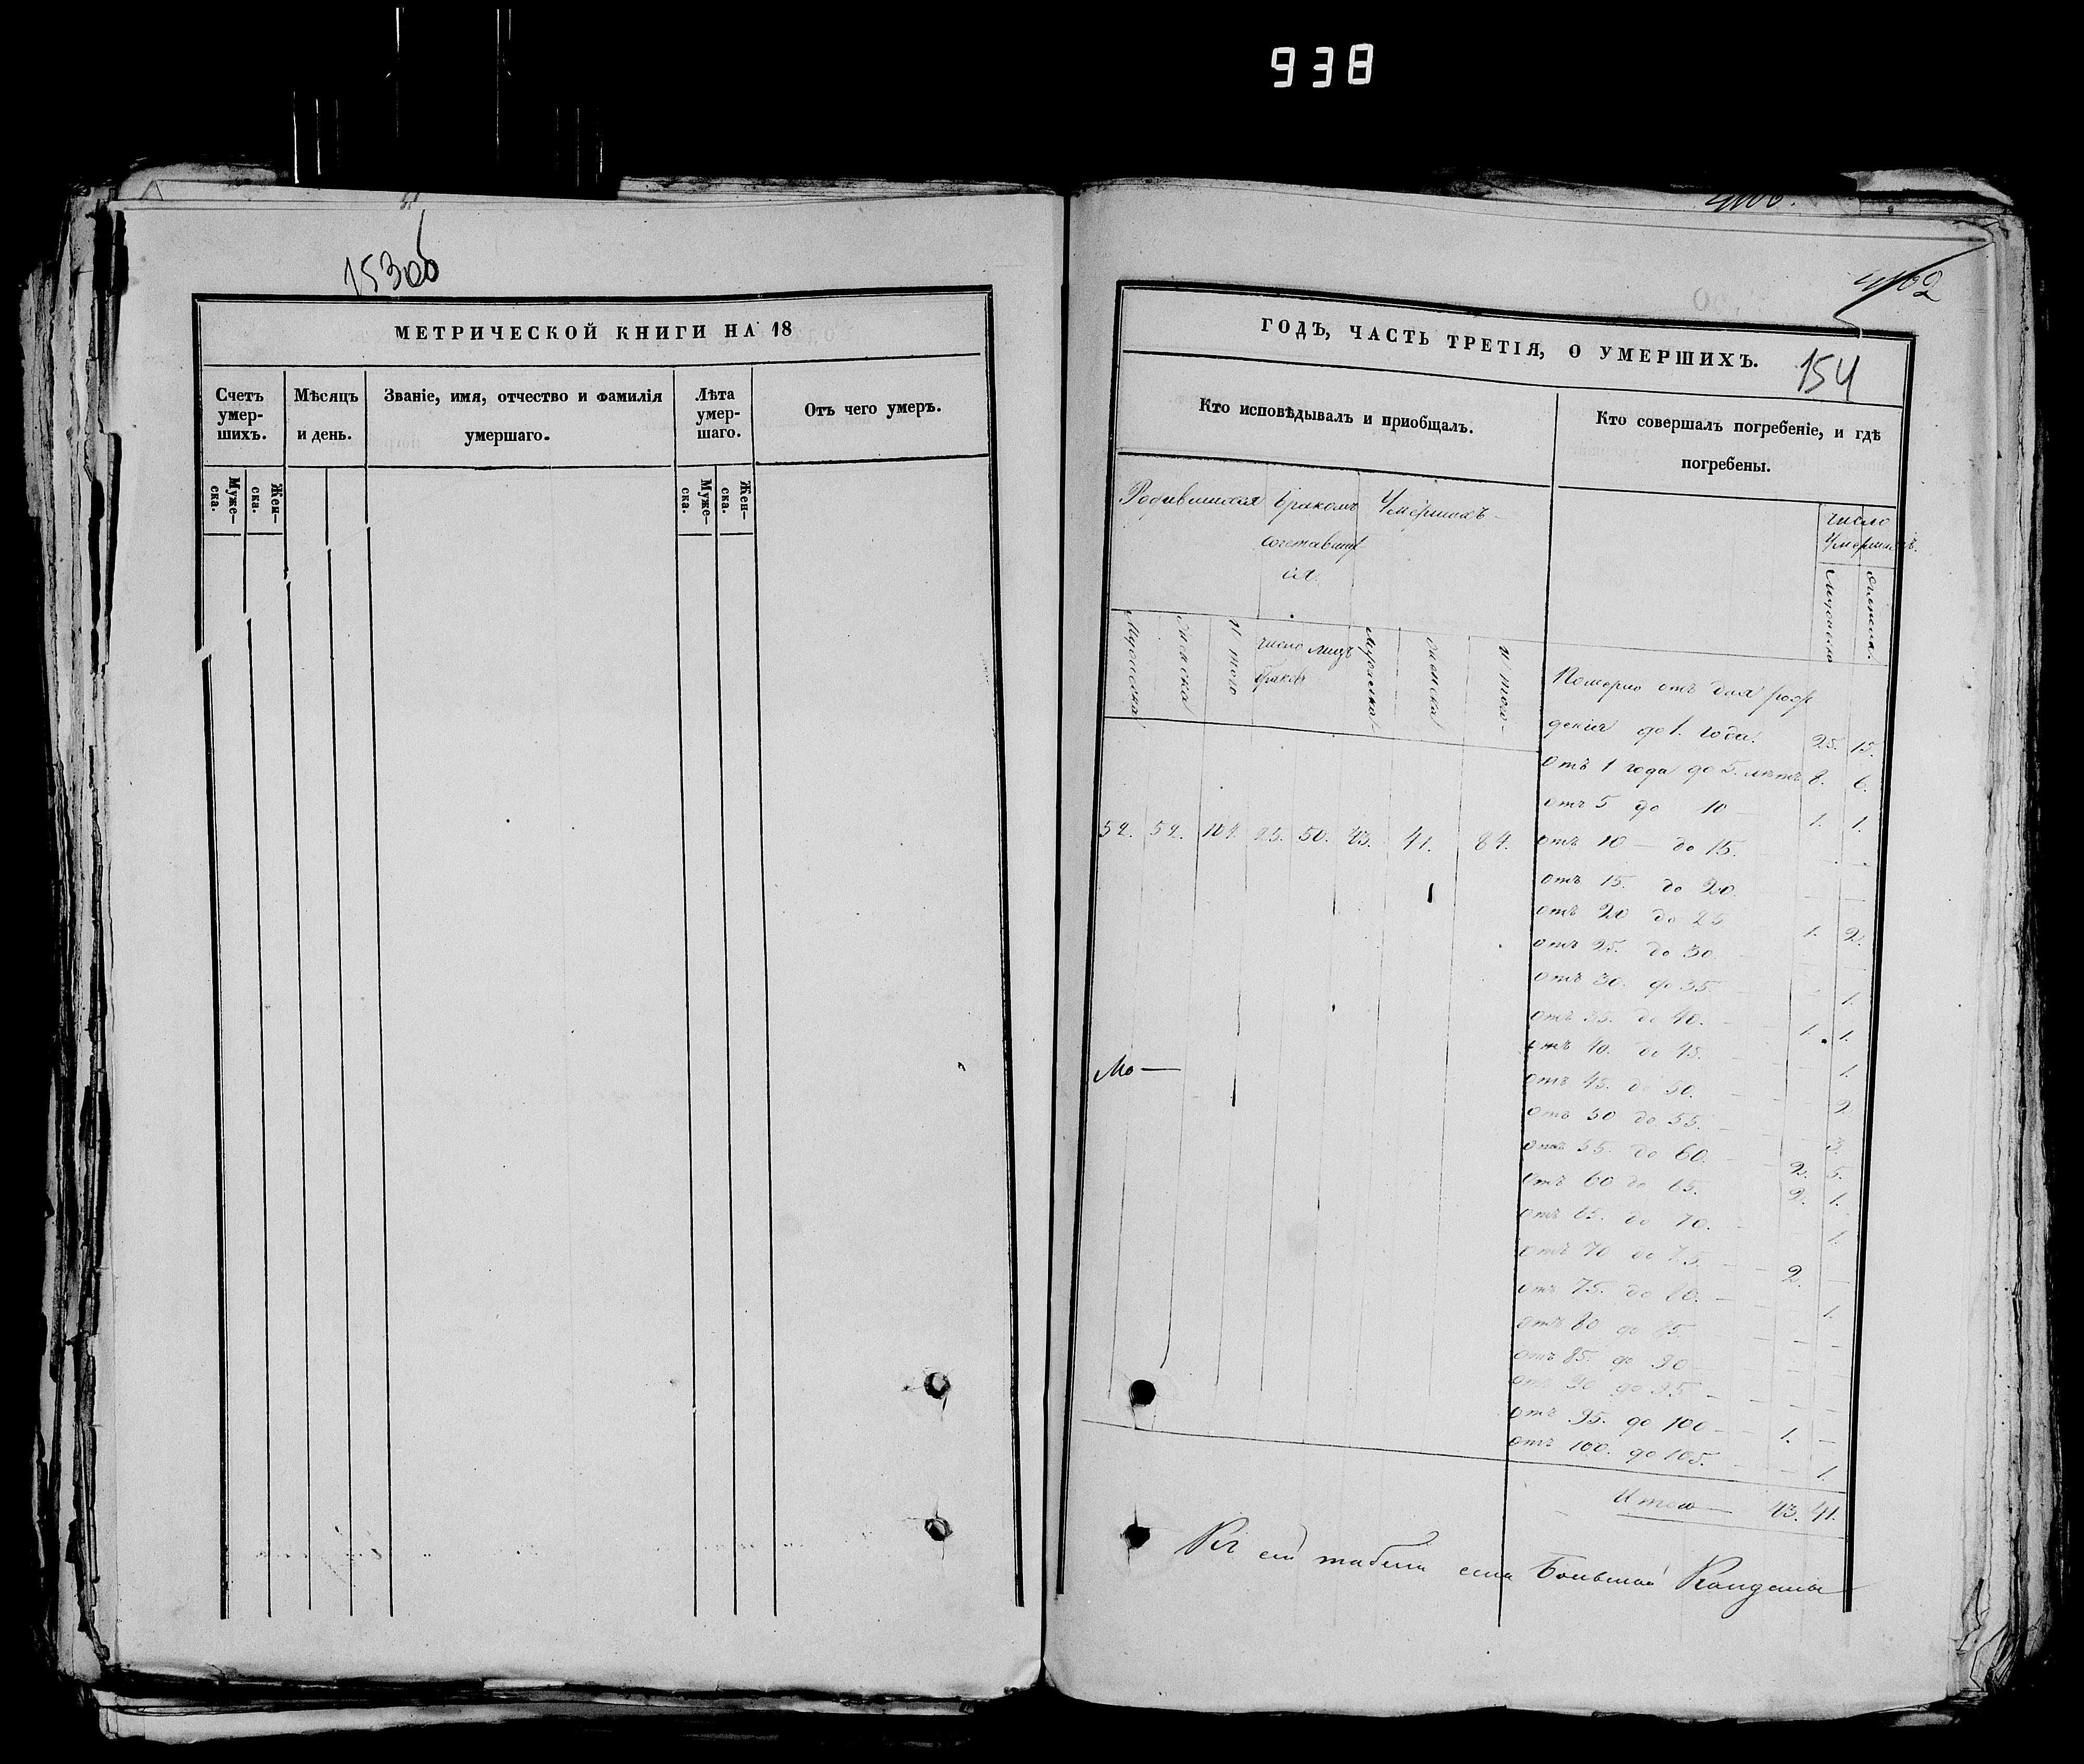 938
153об
МЕТРИЧЕСКОЙ КНИГИ НА 18
Счетъ умер-шихъ.
Мѣсяцъ и день.
Званіе, имя, отчество и фамилія умершаго.
Лѣта умер-шаго.
Отъ чего умеръ.
Муже-ска.
Жен-ска.
Муже-ска.
Жен-ска.
ГОДЪ, ЧАСТЬ ТРЕТІЯ, О УМЕРШИХЪ.
154
Кто исповѣдывалъ и приобщалъ.
Кто совершалъ погребеніе, и гдѣ погребены.
Родившихся
Бракомъ сочетавших ся.
Умершихъ
число Умершихъ.
Мужеска
женска
Мужеска
женска
Итого
число браков
лицъ
Мужеска
женска
Итого
52. 52. 104. 25. 50. 43. 41. 84.
Померло отъ дня рож
денія до 1. года. 25. 15.
отъ 1 года до 5. лѣтъ 8. 6.
отъ 5 до 10 — 1. 1.
отъ 10 — до 15. — —
отъ 15. до 20. — —
отъ 20 до 25 1. 2.
отъ 25. до 30. — —
отъ 30. до 35. — 1.
отъ 35. до 40. — 1. 1.
отъ 40. до 45. — — 1.
отъ 45. до 50. — — 2.
отъ 50 до 55. — — 3.
отъ 55. до 60. — 2. 5.
отъ 60 до 65. 2. 1.
отъ 65. до 70. — — 1.
отъ 70 до 75. — 2. —
отъ 75. до 80. — — 1.
отъ 80 до 85. — —
отъ 85. до 90 — —
отъ 90 до 95 — — —
отъ 95. до 100 — 1. —
отъ 100. до 105. — — 1.
Итого — 43. 41.
Къ сей табели села Большой Кандалы